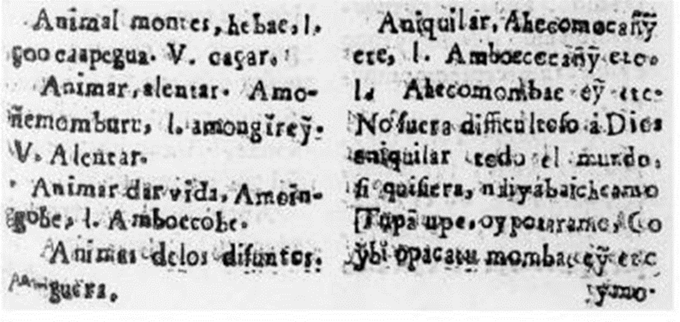 Animal montes, hebae, l.
çoo caapegua. V. caçar.
Animar, alentar. Amo-
ñemomburu, l. amongĭreỹ.
V. Alentar.
Animar dar vida, Amoin-
gobe, l. Amboecobe.
Animas delos difuntos.
guera.
Aniquilar, Ahecomocañỹ
ete, l. Amboececañỹ etc.
l. Ahecomombae eỹ etc.
No fuera difficultoso à Dios
aniquilar todo el mundo,
si quisiera, ndiyabaicheamo
Tupã upe, oypotaramo, Co
ỹbi opacatu mombae eỹ etc
ỹmo.